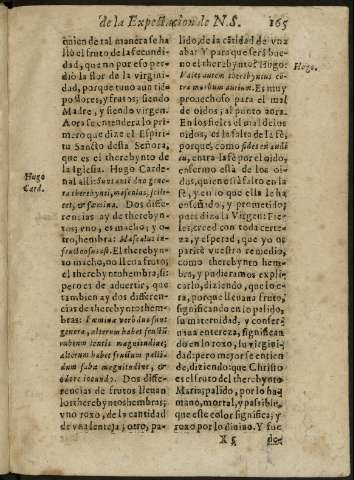 de la Expectacion de N.S. 165
quien de tal manera se ha
llò el fruto de la fecundi-
dad, que no por eso per-
diò la flor de la virgini-
dad, porque tuuo aun tiẽ
po flores, y frutos; siendo
Madre, y siendo virgen.
Aora se entenderà lo pri-
mero que dize el Espiri-
tu Sancto desta Señora,
que es el therebynto de
la Iglesia. Hugo Carde-
nal alli:
Hugo
Card.
Sunt auté duo gene-
ra therebynti, masculus, scili-
cet, & fœmina. Dos dife-
rencias ay de therebyn-
tos; vno, es macho; y o-
tro, hembra: Masculus in-
fructuosus est. El therebyn-
to macho, no lleua fruto;
el therebynto hembra, si:
pero es de aduertir, que
tambien ay dos diferen-
cias de therebyntos hem-
bras: Fœmina verò duo sunt
genera, alterum habet fructũ
rubeum lentis magnitudine;
alterum habet fructum palli-
dum faba magnitudine, &
odore iocundo. Dos dife-
rencias de frutos lleuan
los therebyntos hembras;
vno roxo, de la cantidad
de vna lenteja; otro, pa-
lido, de la cãtidad de vna
aba: Y para que serà bue-
no el therebynto? Hugo:
Hugo.
Valet autem therebyntus cõ-
tra morbum aurium. Es muy
prouechoso para el mal
de oidos; al punto aora.
En los fieles el mal de los
oidos, es la falta de la fè;
porque, como fides ex audi-
tu, entra la fè por el oido,
enfermo està de los oi-
dos, quien està falto en la
fè, y en lo que ella le ha
enseñado, y prometido;
pues dize la Virgen: Fie-
les, creed con toda certe-
za, y esperad, que yo os
parirè vuestro remedio,
como therebynto hem-
bra, y pudieramos expli-
carlo, diziendo, que lo e-
ra, porque lleuaua fruto,
significando en lo palido,
la maternidad, y conser-
uaua entereza, significan-
do en lo roxo, su virgini-
dad: pero mejor se entien-
de, diziendo: que Christo
es el fruto del therebynto
Maria; palido, por lo hu-
mano, mortal, y passible,
que este color significa; y
roxo por lo diuino. Y fue
X 5